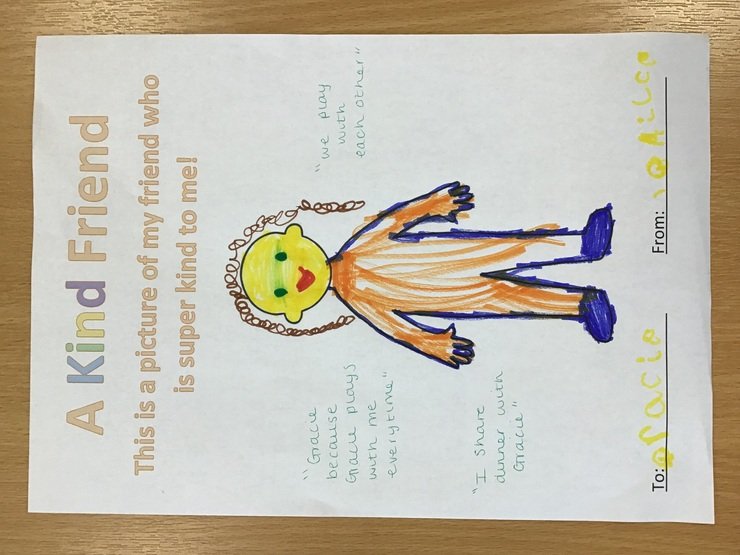 A Kind Friend
This is a picture of my friend who
is super kind to me!
"Gracie
because
Gracie plays
with me
everytime"
"we play
with
each other"
"I share
dinner with
Gracie"
To: Gracie
From: